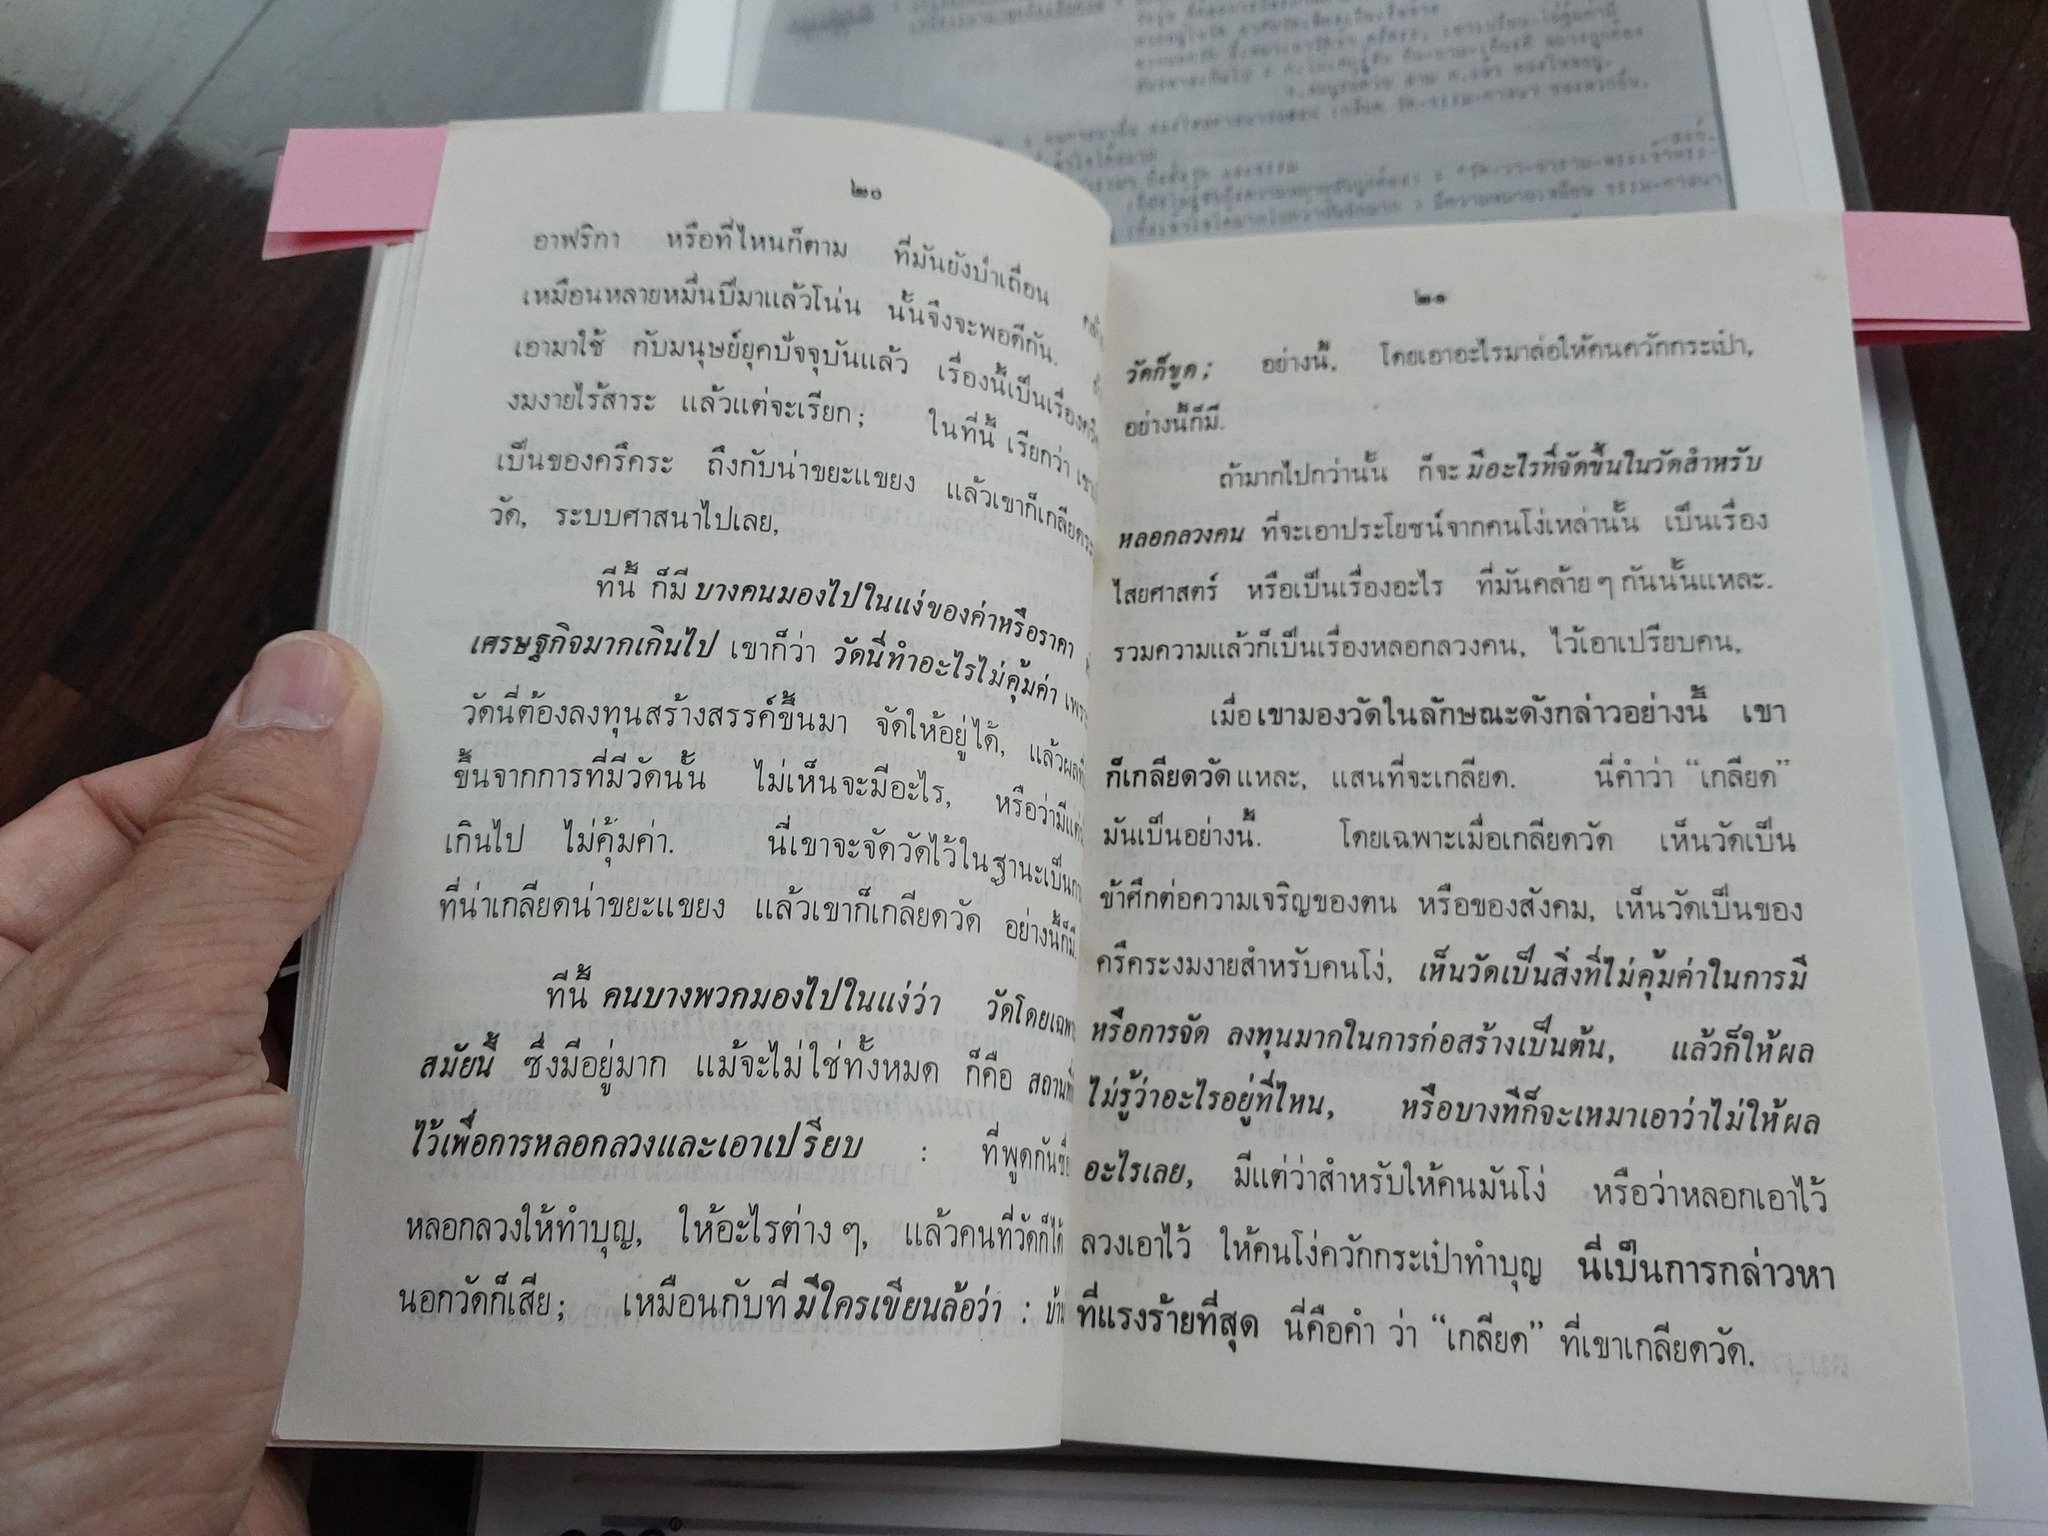 ๒๐
อาฟริกา หรือที่ไหนก็ตาม ที่มันยังป่าเถื่อน
เหมือนหลายหมื่นปีมาแล้วโน่น นั้นจึงจะพอดีกัน.
เอามาใช้ กับมนุษย์ยุคปัจจุบันแล้ว เรื่องนี้เป็นเรื่อง
งมงายไร้สาระ แล้วแต่จะเรียก; ในที่นี้ เรียกว่า
เป็นของครึคระ ถึงกับน่าขยะแขยง แล้วเขาก็เกลียด
วัด, ระบบศาสนาไปเลย,
ทีนี้ ก็มี บางคนมองไปในแง่ของค่าหรือราคา
เศรษฐกิจมากเกินไป เขาก็ว่า วัดนี่ทำอะไรไม่คุ้มค่า
วัดนี่ต้องลงทุนสร้างสรรค์ขึ้นมา จัดให้อยู่ได้, แล้วผล
ขึ้นจากการที่มีวัดนั้น ไม่เห็นจะมีอะไร, หรือว่ามี
เกินไป ไม่คุ้มค่า. นี่เขาจะจัดวัดไว้ในฐานะเป็น
ที่น่าเกลียดน่าขยะแขยง แล้วเขาก็เกลียดวัด อย่างนี้ก็มี.
ทีนี้ คนบางพวกมองไปในแง่ว่า วัดโดย
สมัยนี้ ซึ่งมีอยู่มาก แม้จะไม่ใช่ทั้งหมด ก็คือ
ไว้เพื่อการหลอกลวงและเอาเปรียบ : ที่พูดกัน
หลอกลวงให้ทำบุญ, ให้อะไรต่าง ๆ, แล้วคนที่วัดก็ได้
นอกวัดก็เสีย; เหมือนกับที่ มีใครเขียนล้อว่า :
๒๑
วัดก็ขูด; อย่างนี้, โดยเอาอะไรมาล่อให้คนควักกระเป๋า,
อย่างนี้ก็มี.
ถ้ามากไปกว่านั้น ก็จะ มีอะไรที่จัดขึ้นในวัดสำหรับ
หลอกลวงคน ที่จะเอาประโยชน์จากคนโง่เหล่านั้น เป็นเรื่อง
ไสยศาสตร์ หรือเป็นเรื่องอะไร ที่มันคล้าย ๆ กันนั้นแหละ.
รวมความแล้วก็เป็นเรื่องหลอกลวงคน, ไว้เอาเปรียบคน,
เมื่อ เขามองวัดในลักษณะดังกล่าวอย่างนี้ เขา
ก็เกลียดวัด แหละ, แสนที่จะเกลียด. นี่คำว่า “เกลียด”
มันเป็นอย่างนี้. โดยเฉพาะเมื่อเกลียดวัด เห็นวัดเป็น
ข้าศึกต่อความเจริญของตน หรือของสังคม, เห็นวัดเป็นของ
ครึคระงมงายสำหรับคนโง่, เห็นวัดเป็นสิ่งที่ไม่คุ้มค่าในการมี
หรือการจัด ลงทุนมากในการก่อสร้างเป็นต้น, แล้วก็ให้ผล
ไม่รู้ว่าอะไรอยู่ที่ไหน, หรือบางทีก็จะเหมาเอาว่าไม่ให้ผล
อะไรเลย, มีแต่ว่าสำหรับให้คนมันโง่ หรือว่าหลอกเอาไว้
ลวงเอาไว้ ให้คนโง่ควักกระเป๋าทำบุญ นี่เป็นการกล่าวหา
ที่แรงร้ายที่สุด นี่คือคำ ว่า “เกลียด” ที่เขาเกลียดวัด.